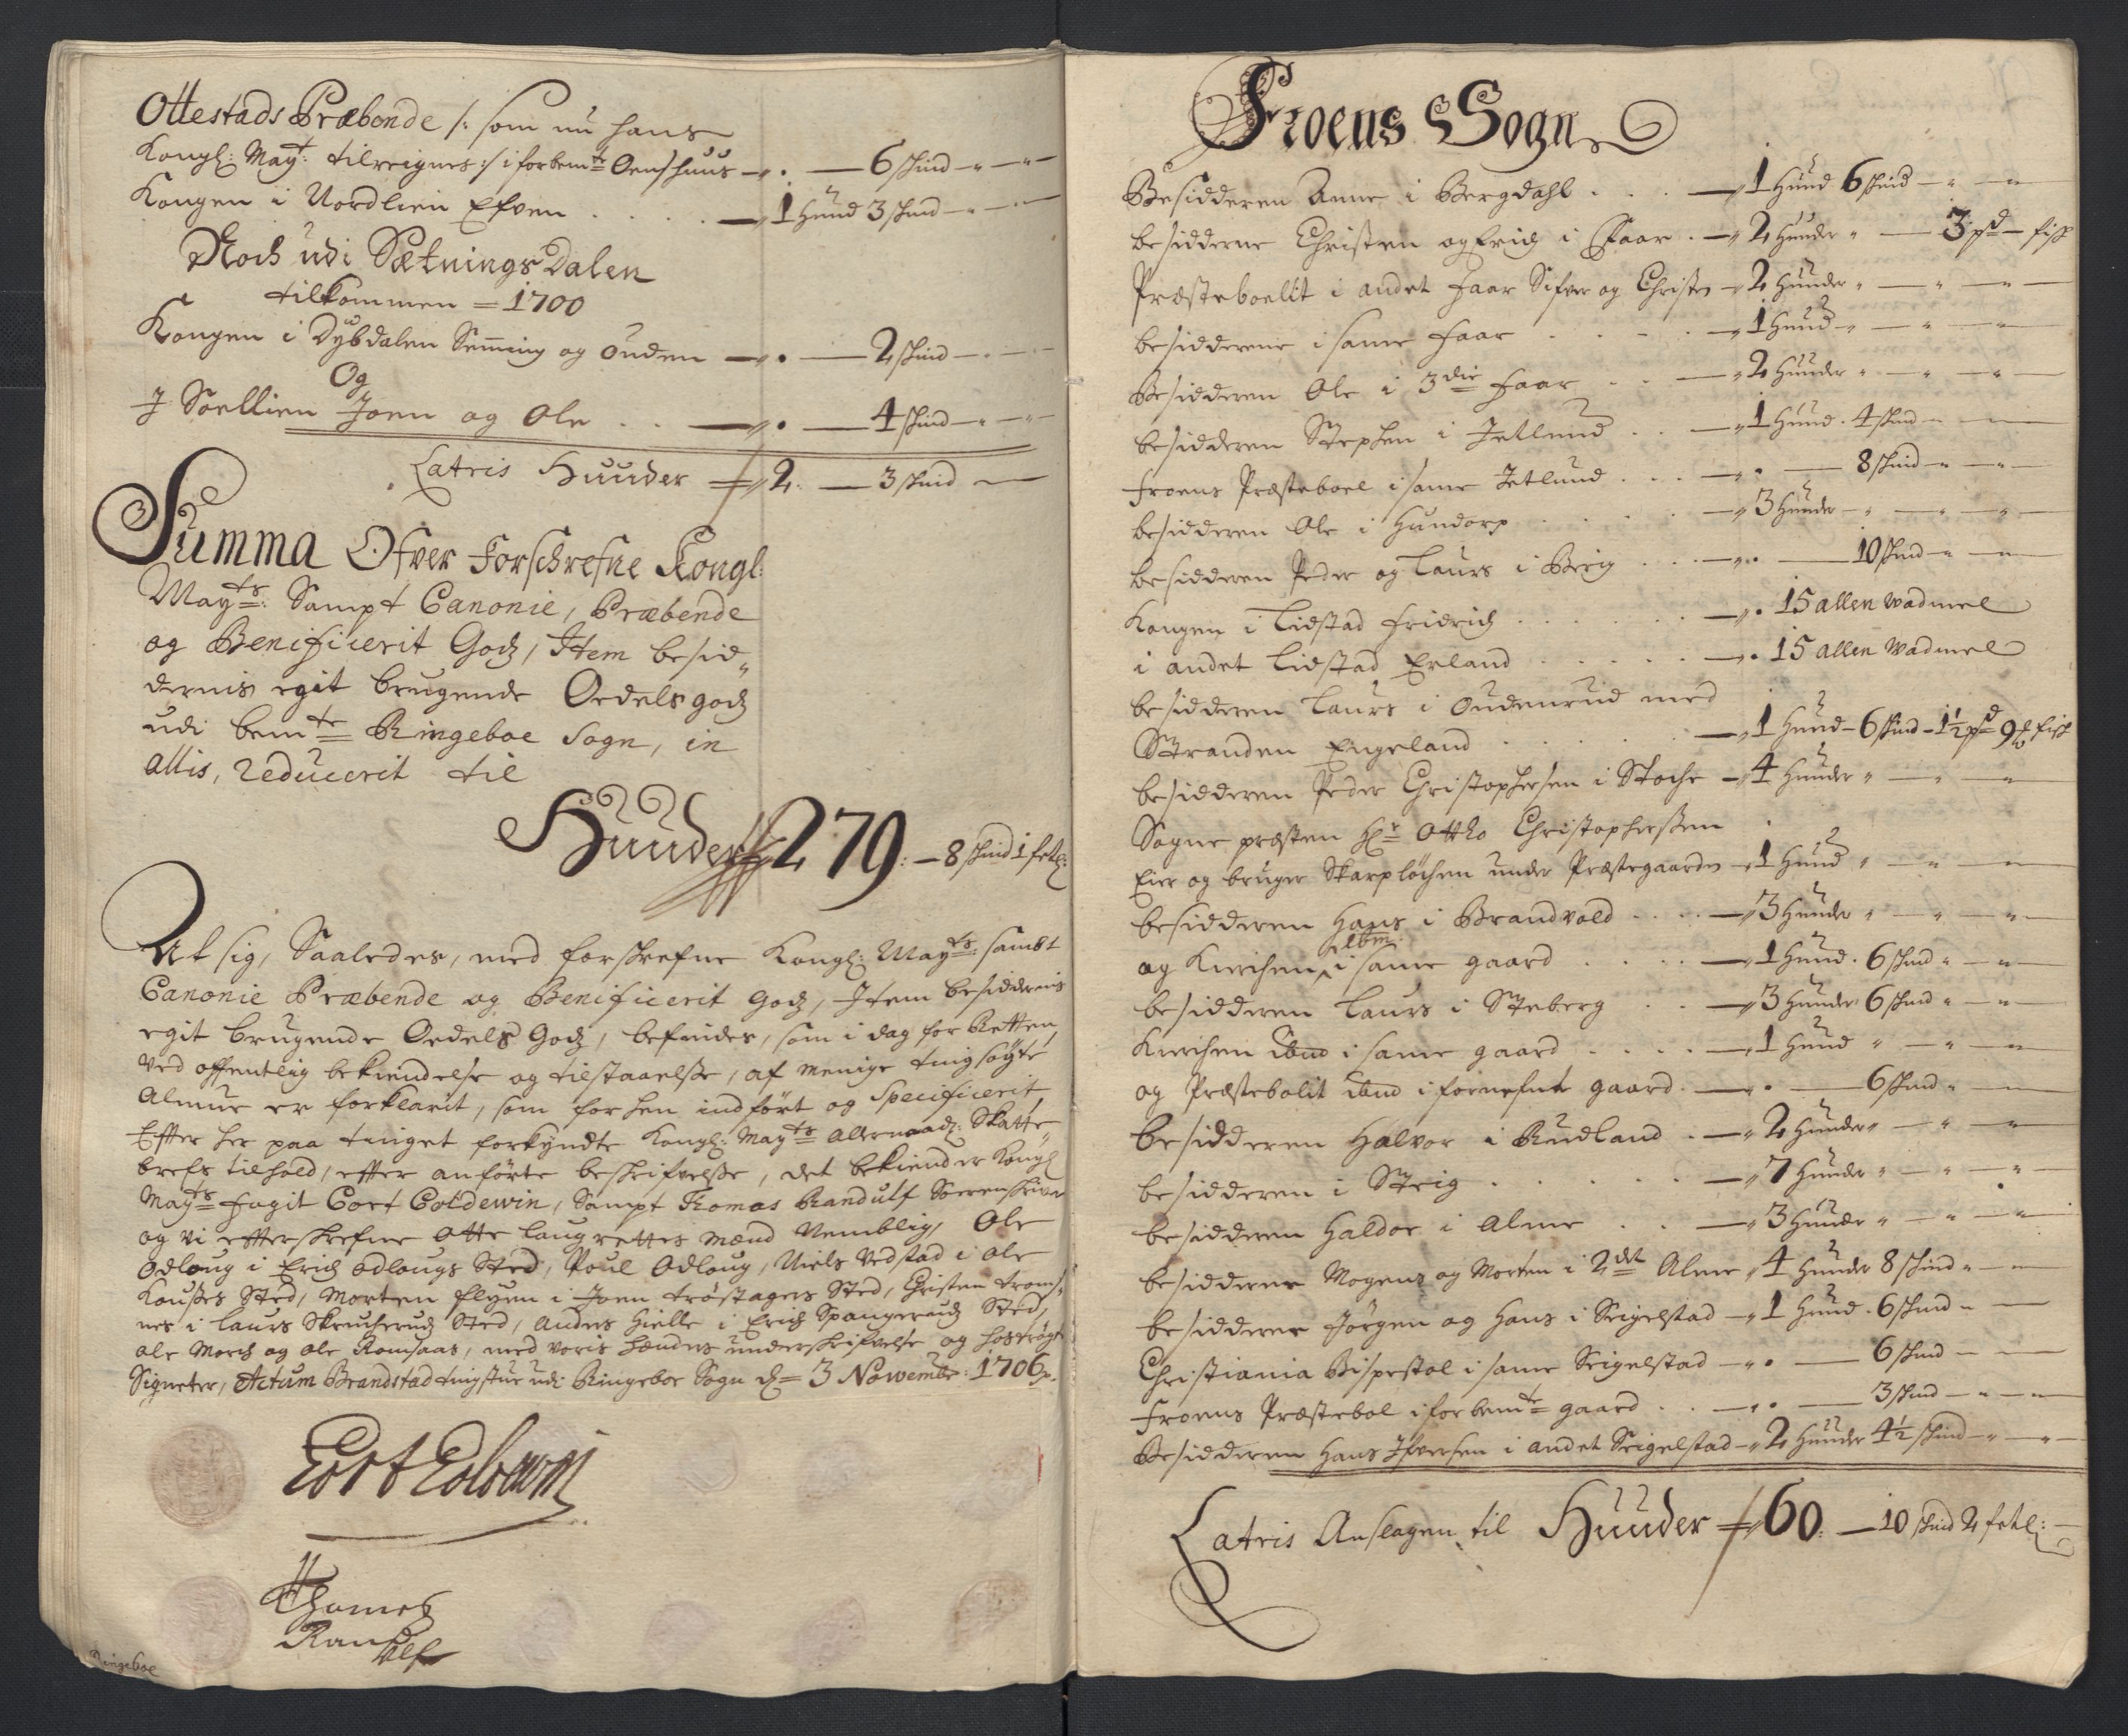 Ottestads Præbende /: som nu hans
Kongl: Mayt: tilreigner :/ i forbemte Oenshuus — 6 skind
Kongen i Nordlien Efven . . . . — 1 Hund 3 skind
Noch udi Sætnings Dalen
tilkommen = 1700
Kongen i Dybdalen Semming og Ouden — 2 skind
Og
J Soellien Joen og Ole . . — 4 skind
Latris Huuder 2. — 3 skind
Summa Ofver Forschrefne Kongl:
Mayts: Sampt Canonie, Præbende
og Benificerit Godz, Jtem besid„
dernis egit brugende Oedels godz
udi bemte Ringeboe Sogn, in
allis, reducerit til
Huuder 279. — 8 skind 1 fetl:
At sig, Saaledes, med forskrefne Kongl: Mayts: sambt
Canonie Præbende og Benificerit godz, Jtem besiddernis
egit brugende Oedels Godz, befindes, som i dag for Retten,
ved offentlig bekiendelse og tilstaaelsse, af menige tingsøgte
Almue er forklarit, som for hen indført og Specificerit,
Effter her paa tinget forkyndte Kongl: Mayts Allernaadz: Skatte„
brefs tilhold, effter anførte beskrifvelsse, det bekiender Kongl
Mayts fogit Cort Coldewin, Sampt Tomas Randulf Sorenskriver
og vi effterskrefne otte laugrettes mænd Nemblig, Ole
Odloug i Erich Odlougs Sted, Poul Odloug, Niels Vedstad i Ole
Kousses Sted, Morten flyen i Joen trøstagers Sted, Christen troms„
nes i Laurs Skrucherudz Sted, Anders Hielle i Erich Spangerudz Sted,
Ole Moch og Ole Romsaas, med voris hænders underskrifvelse og hostrøgte
Signeter, Actum Brandstad tingstue udi Ringeboe Sogn d= 3 Nowembr: 1706.
Cort Coldewin
Thomes
Randulf
Ringeboe
Froens Sogn
Besidderen Anne i Bergdahl . . . — 1 Hund 6 skind
besidderne Christen og Erich i Faar . — 2 Huuder — 3 pd fisk
Præsteboelit i andet Faar Sifver og Christen — 2 Huuder
besidderene i same Faar . . . . — 1 Hund
Besidderen Ole i 3die Faar . . — 2 Huuder
besidderen Stephen i Jetlund . . — 1 Hund . 4 skind
Froens Præsteboel i same Jetlund . . . — 8 skind
besidderen Ole i Hundorp . . . . — 3 Huuder
besidderen Peder og Laurs i Berig . . . — 10 skind
Kongen i Lidstad Fridrich . . . . . . — 15 allen wadmel
i andet Lidstad Erland . . . . . — 15 allen wadmel
besidderen Laurs i Oudenrud med
Stranden Engeland . . . . . — 1 Hund — 6 skind — 1½ pd 9 fisk
besidderen Peder Christophersen i Stoche — 4 Huuder
Sogne præsten Hr Ottho Christopherssen
Eier og bruger Skarpløchen under Præstegaarden — 1 Hund
besidderen Hans i Brandvold . . . . — 3 Huuder
og Kirchen ibm: i same gaard . . . . — 1 Hund . 6 skind
besidderen Laurs i Steberg . . — 3 Huuder 6 skind
Kirchen ibmd i same gaard . . . . — 1 Hund
og Præstebolit ibmd i fornefnte gaard . — 6 skind
besidderen Halvor i Rudland . — 2 Huuder
besidderen i Steig . . . . . — 7 Huuder
besidderen Haldor i Alme . . — 3 Huuder
besidderne Mogens og Morten i 2det Alme 4 Huuder 8 skind
besidderne Jørgen og Hans i Seigelstad — 1 Hund . 6 skind
Christiania Bispestol i same Seigelstad — 6 skind
Froens Præstebol i forbemte gaard . . — 3 skind
Besidderen Hans Ifversen i andet Seigelstad — 2 Huuder 4½ skind
Latris Anslagen til Huuder 60. — 10 skind 2 fetl: